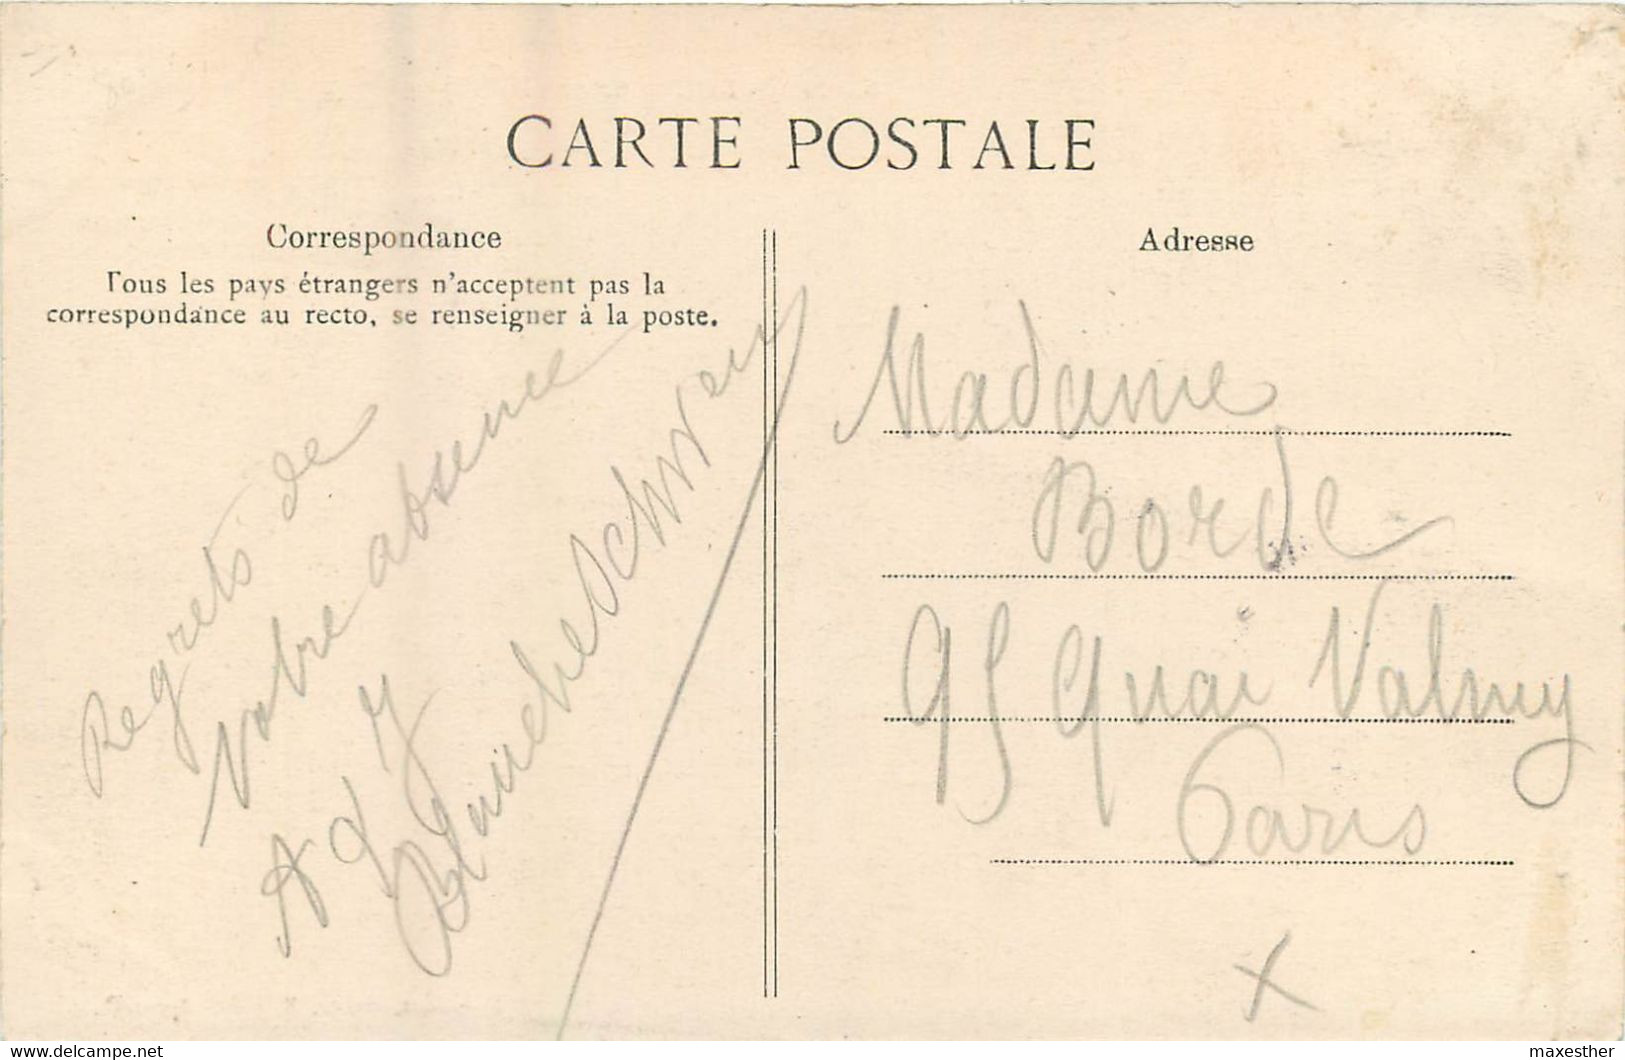 CARTE POSTALE
Correspondance
Tous les pays étrangers n'acceptent pas la
correspondance au recto, se renseigner à la poste.
Regrets de
votre absence
A & J
Blanche
Adresse
Madame
Borde
95 Quai Valmy
Paris
x
www.delcampe.net
maxesther